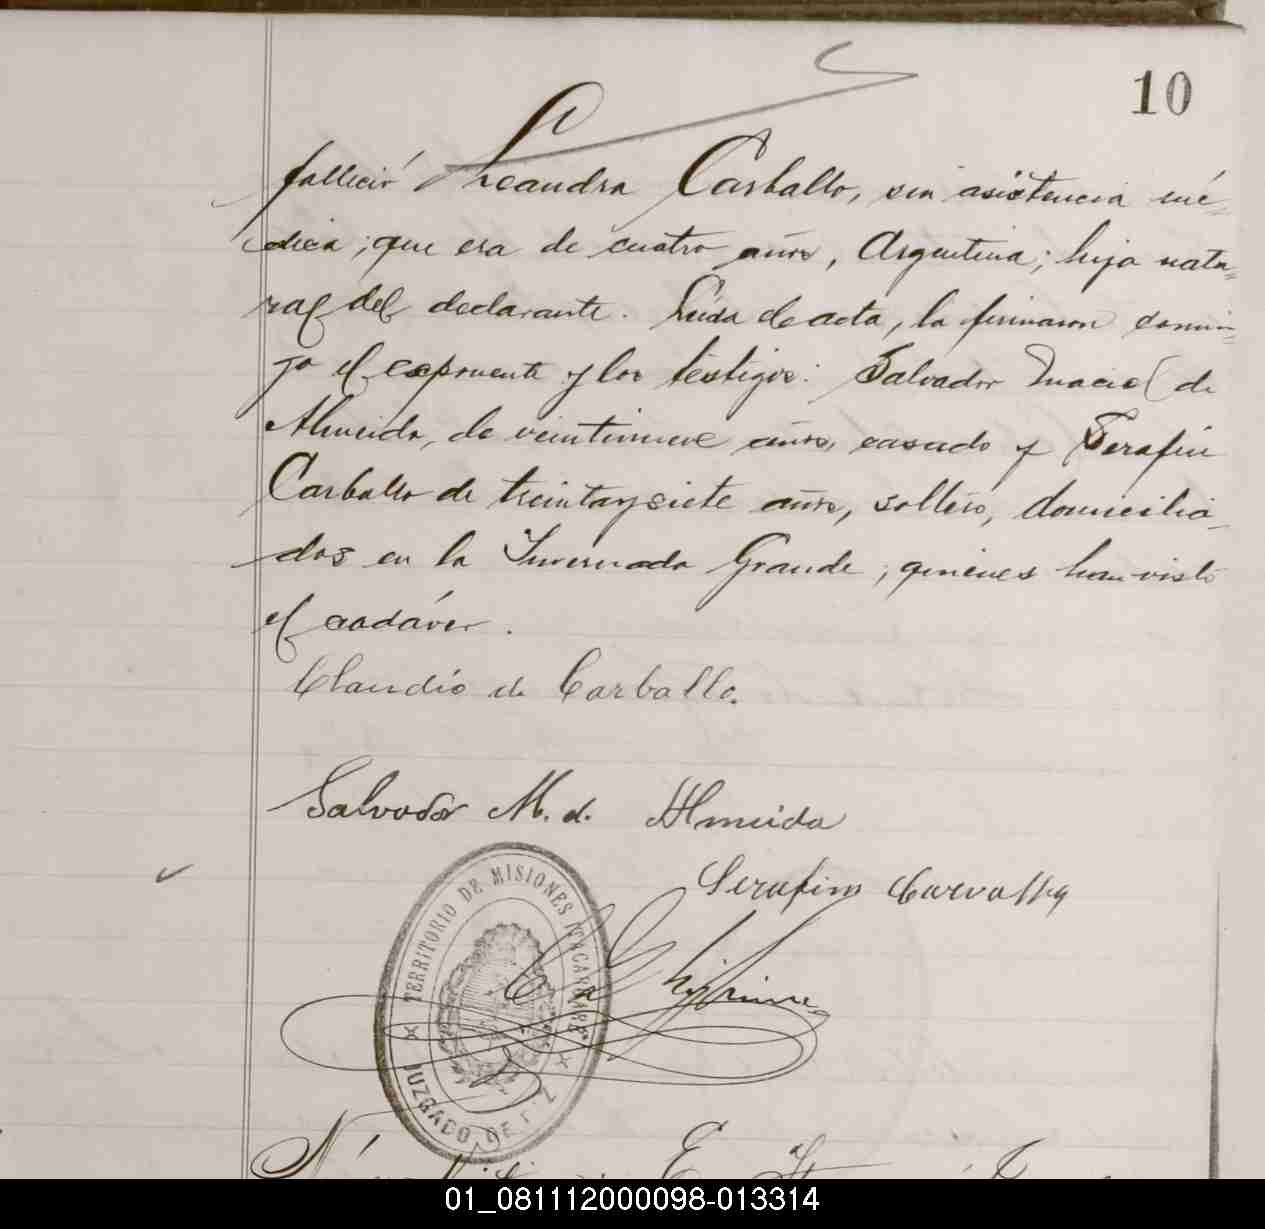 10
falleció Leandra Carballo, sin asistencia mé=
dica; que era de cuatro años, Argentina; hija natu=
ral del declarante. Leída el acta, la firmaron conmi=
go el exponente y los testigos: Salvador Maciel de
Almeida, de veintinueve años, casado y Serafin
Carballo de treinta y siete años, soltero, domicilia-
dos en la Invernada Grande, quienes han visto
el cadáver.
Claudio de Carballo.
Salvador M. d. Almeida
Serafim Carvallho
TERRITORIO DE MISIONES ITACARUARE
JUZGADO DE PAZ
01_081112000098-013314